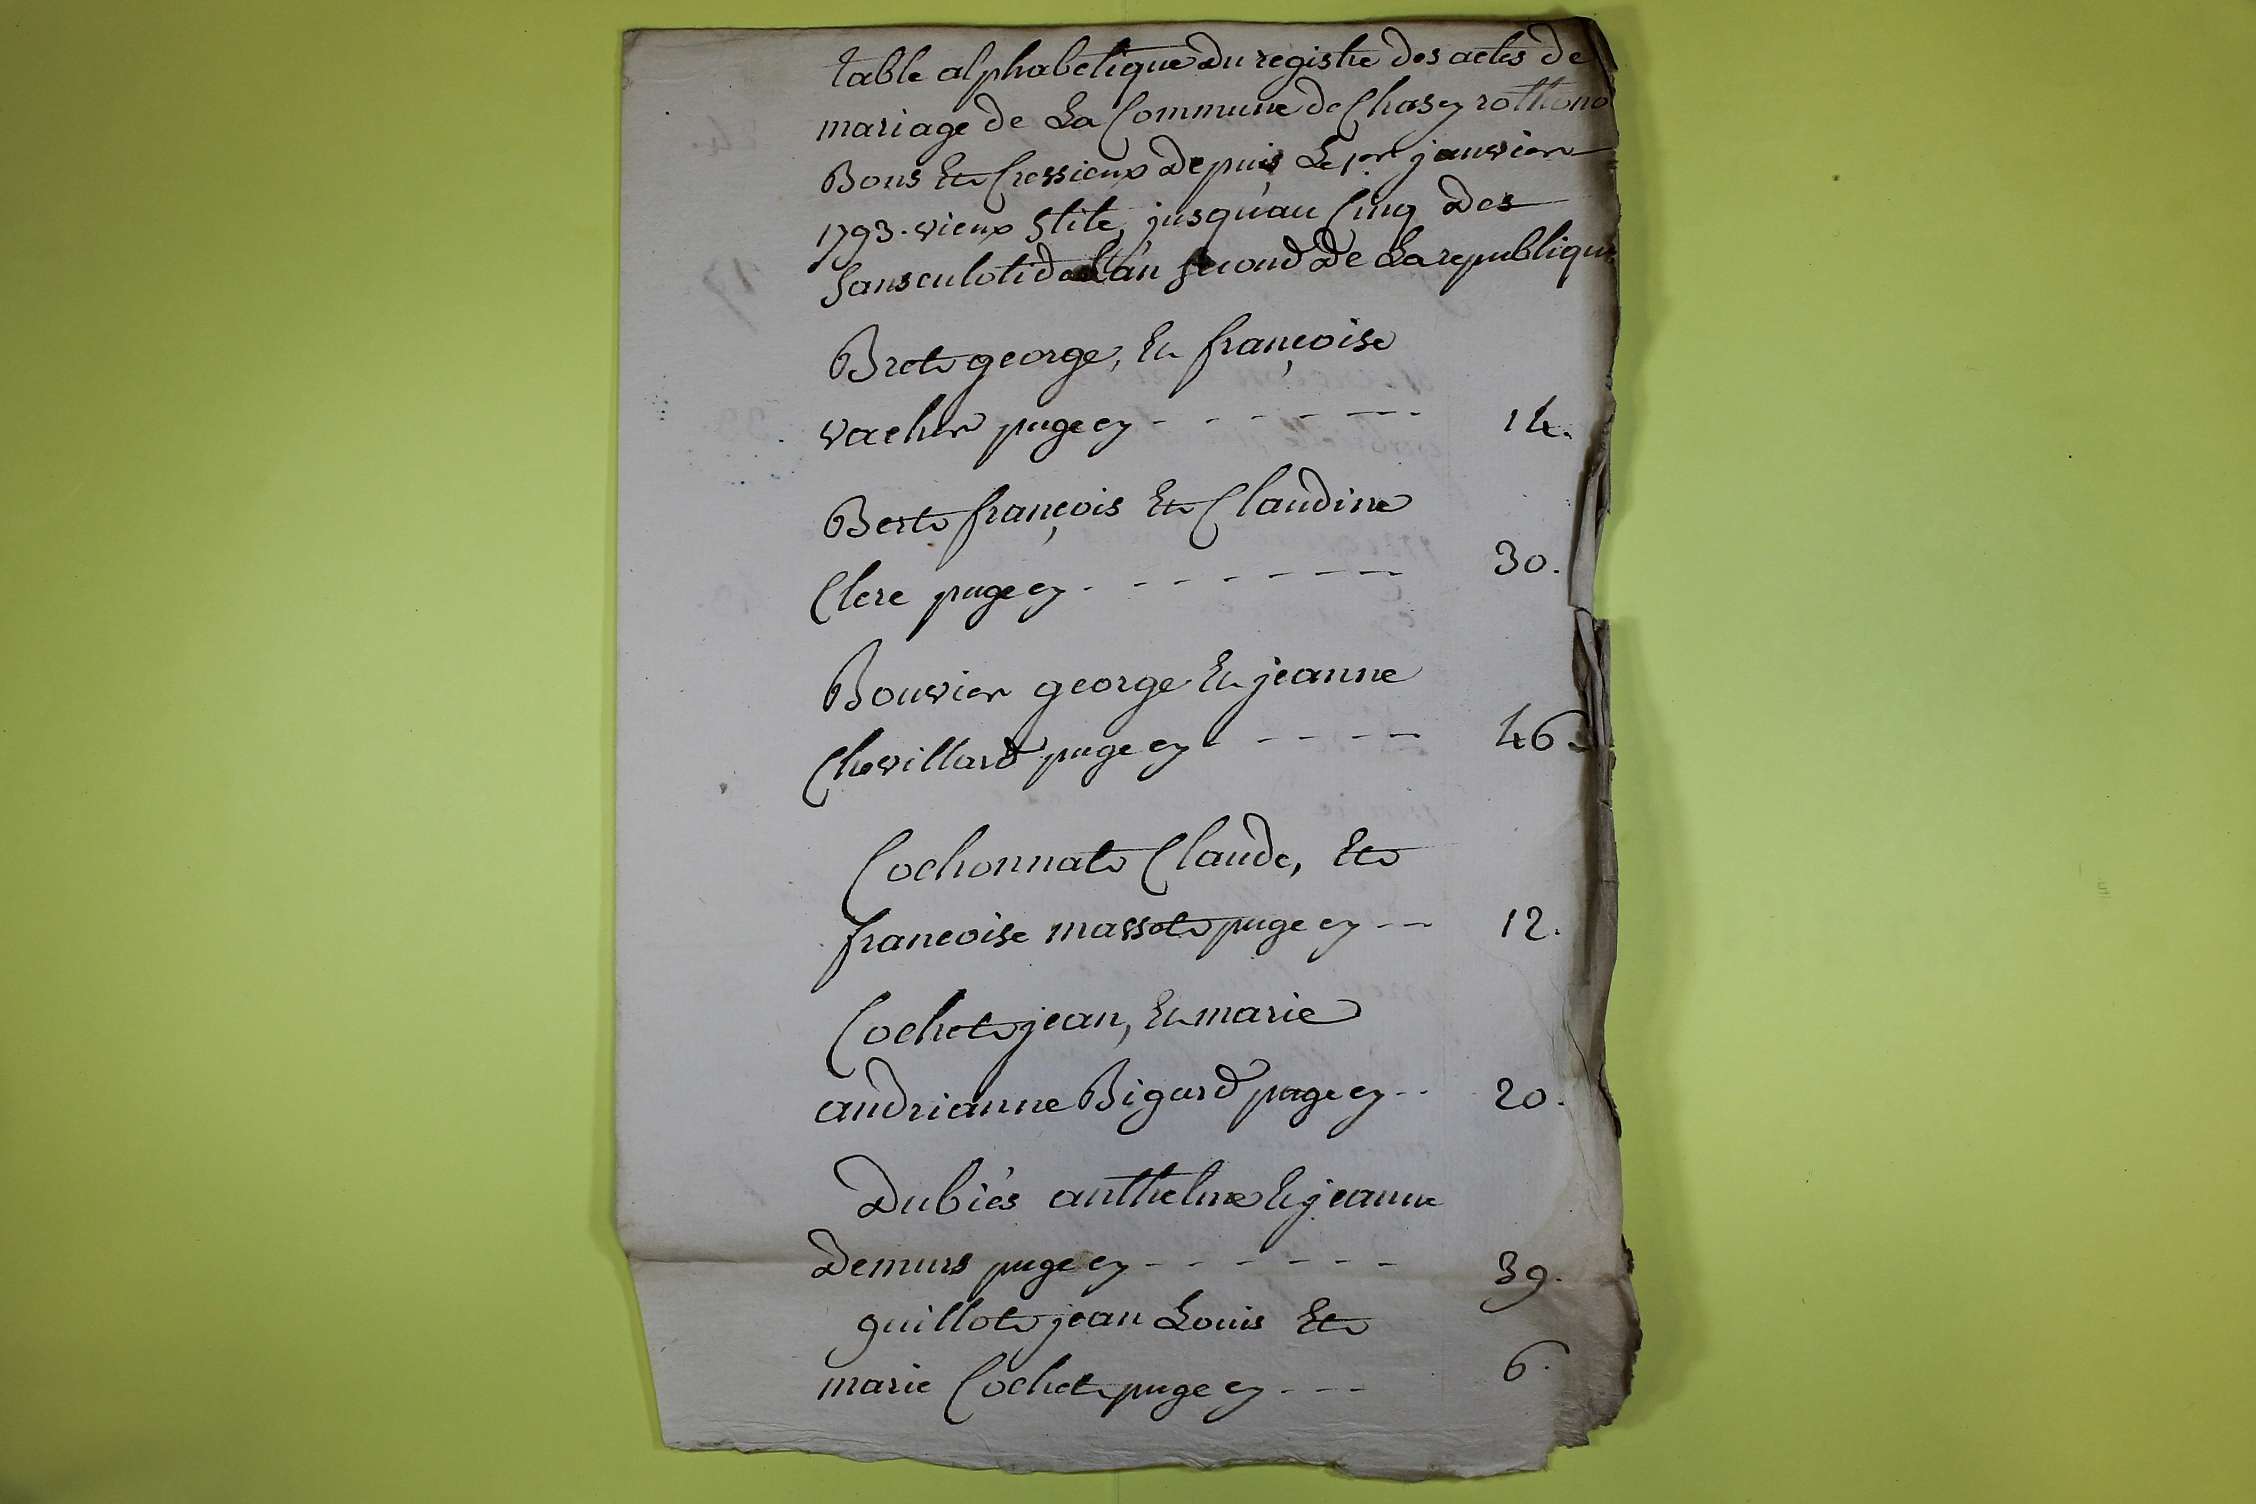 table alphabetique Du registre des actes de
mariage de La Commune de Chasey rothono
Bons Et Cressieux Depuis Le 1er janvier
1793. vieux Stile, jusqu'au Cinq Des
Sansculotid l'an second De La republique
Bret george, Et françoise
vacher page ey - - - - - - - 14.
Bert françois Et Claudine
Clere page ey - - - - - - - - 30.
Bouvier george Et jeanne
Chevillard page ey - - - - - 46.
Cochonnat Claude, Et
francoise massot page ey - - 12.
Cochet jean, Et marie
andrianne Bigard page ey - - 20.
Dubiés anthelme Et jeanne
Demurs page ey - - - - - - 39.
guillot jean Louis Et
marie Cochet page ey - - - 6.